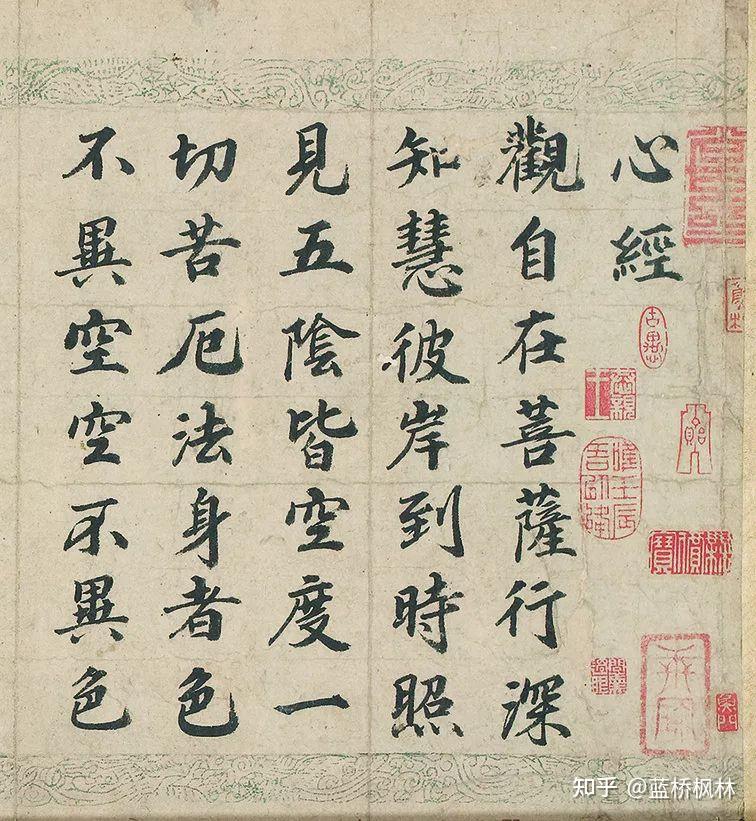 心經
觀自在菩薩行深
知慧彼岸到時照
見五陰皆空度一
切苦厄法身者色
不異空空不異色
知乎 @蓝桥枫林